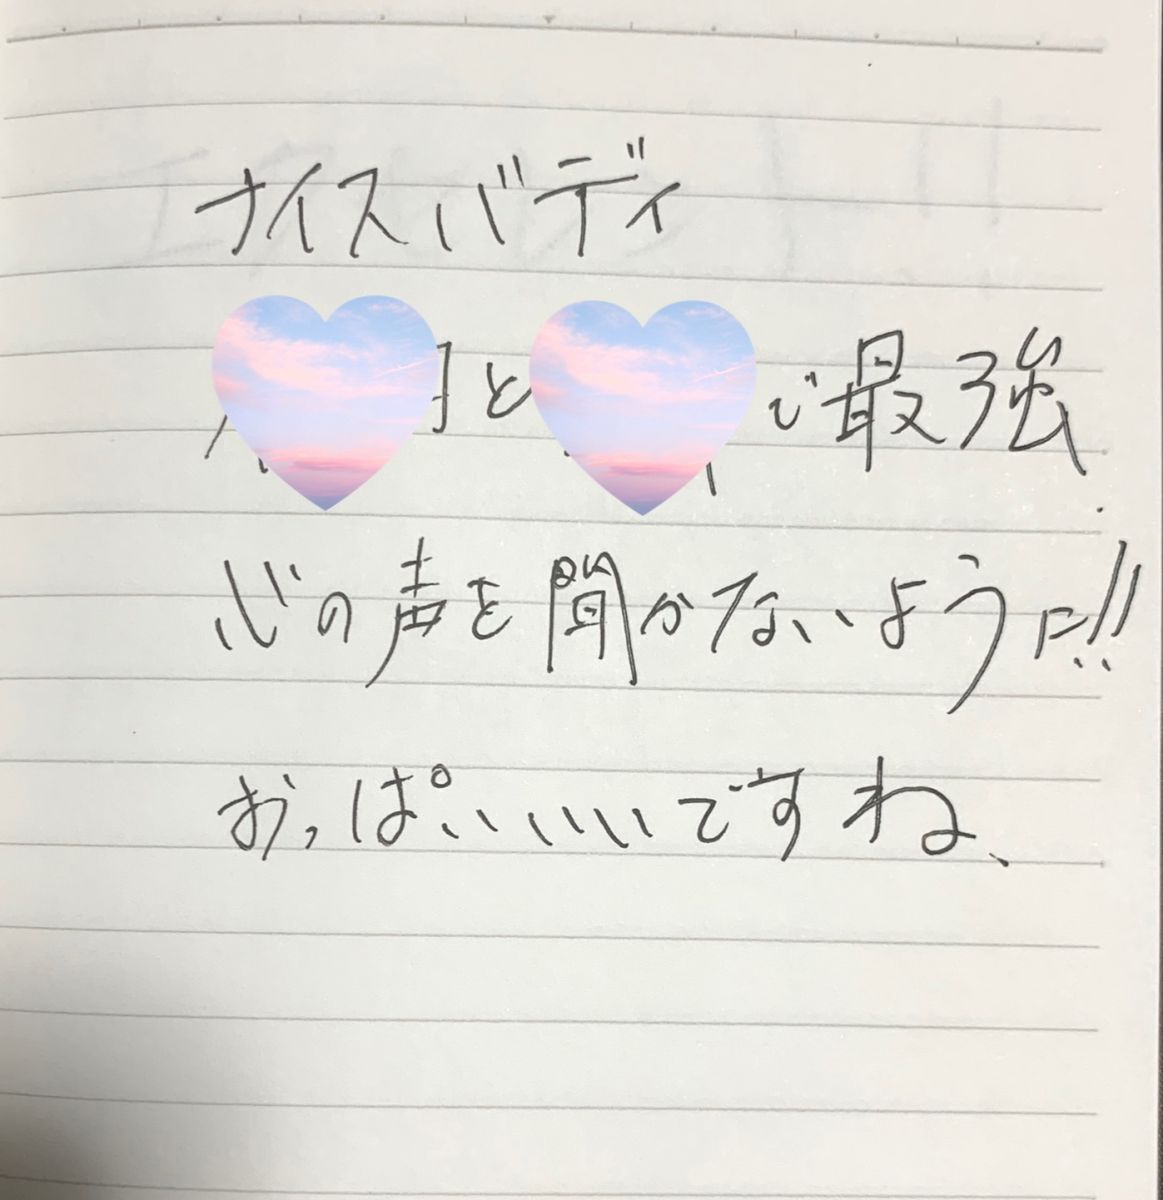 ナイスバディ
と で最強
心の声を聞かないように!!
おっぱいいいですね、